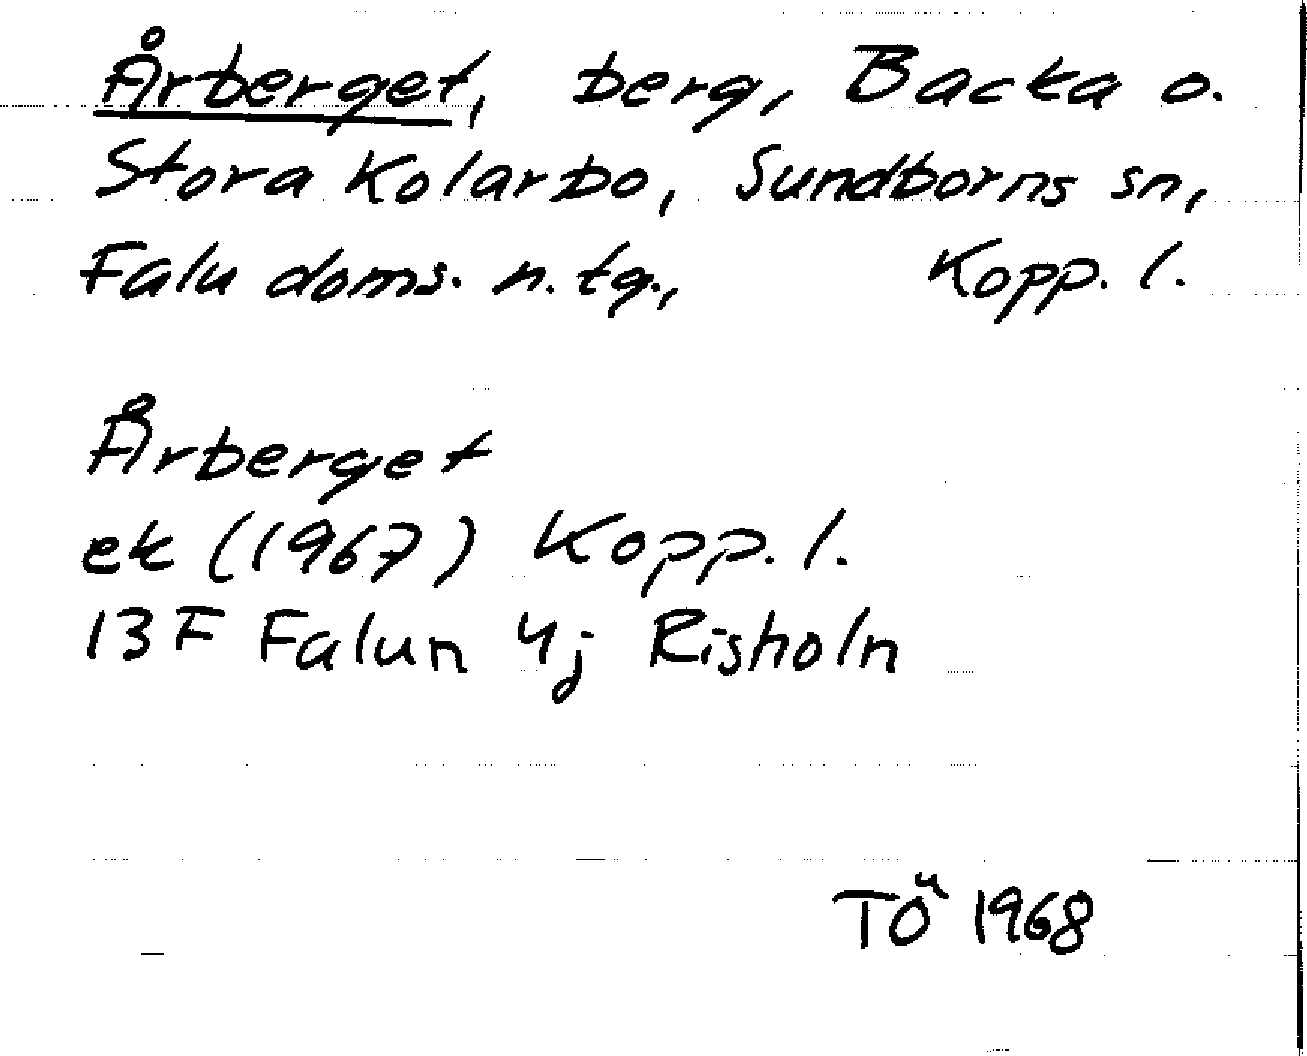 Årberget, berg, Backa o.
Stora Kolarbo, Sundborns sn,
Falu doms. n. tg., Kopp. l.
Årberget
ek (1967) Kopp. l.
13 F Falun 4j Risholn
TÖ 1968